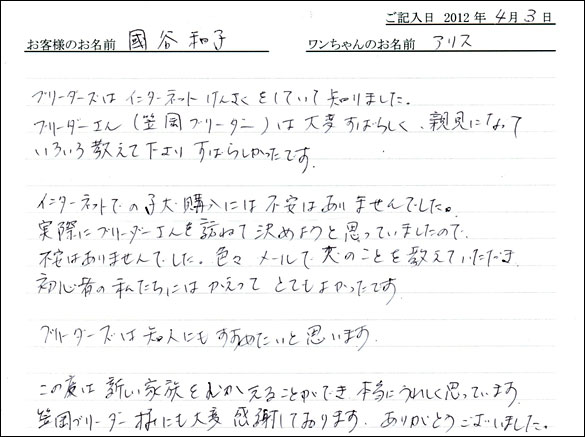 ご記入日 2012 年 4 月 3 日
お客様のお名前 國谷 和子 ワンちゃんのお名前 アリス
ブリーダーズは インターネット けんさくをしていて 知りました。
ブリーダーさん(笠岡ブリーダー)は 大変 すばらしく、親見になって
いろいろ 教えて下さり すばらしかったです.
インターネットでの 子犬 購入には 不安は ありませんでした。
実際に ブリーダーさんを 訪ねて 決めようと 思っていましたので.
不安はありませんでした. 色々 メールで 犬のことを 教えていただき
初心者の 私たちには かえって とてもよかったです.
ブリーダーズは 知人にも すすめたいと 思います.
この度は 新しい 家族を むかえることができ 本当に うれしく 思っています.
笠岡ブリーダー 様にも 大変 感謝しております. ありがとうございました.